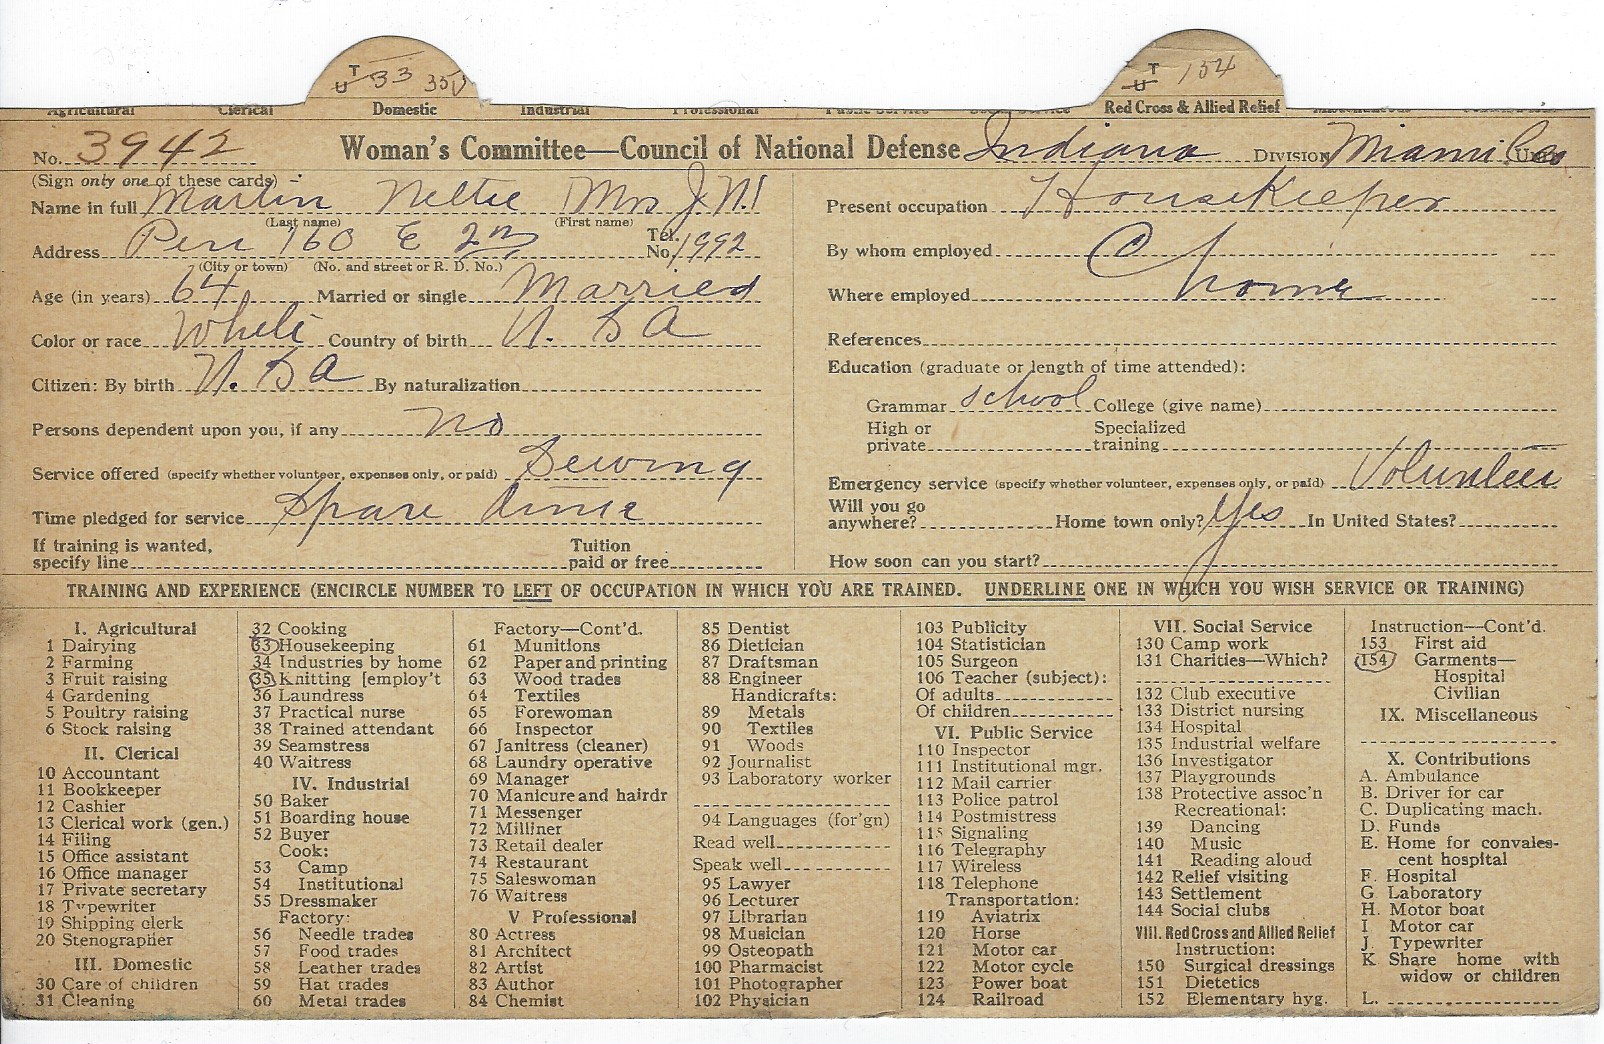 T U 33 35
T U 154
Agricultural Clerical Domestic Industrial Professional Public Service Social Service Red Cross & Allied Relief Miscellaneous
No. 3942 Woman's Committee—Council of National Defense Indiana DIVISION Miami Co. UNIT
(Sign only one of these cards)
Name in full Martin Nettie Mrs J. N.
(Last name) (First name)
Address Peru 160 E 2nd Tel. No. 1992
(City or town) (No. and street or R. D. No.)
Age (in years) 64 Married or single Married
Color or race White Country of birth U. S A
Citizen: By birth U. S A By naturalization
Persons dependent upon you, if any no
Service offered (specify whether volunteer, expenses only, or paid) Sewing
Time pledged for service Spare time
If training is wanted, specify line Tuition paid or free
Present occupation Housekeeper
By whom employed @
Where employed home
References
Education (graduate or length of time attended):
Grammar school College (give name)
High or private Specialized training
Emergency service (specify whether volunteer, expenses only, or paid) Volunteer
Will you go anywhere? Home town only? Yes In United States?
How soon can you start?
TRAINING AND EXPERIENCE (ENCIRCLE NUMBER TO LEFT OF OCCUPATION IN WHICH YOU ARE TRAINED. UNDERLINE ONE IN WHICH YOU WISH SERVICE OR TRAINING)
I. Agricultural
1 Dairying
2 Farming
3 Fruit raising
4 Gardening
5 Poultry raising
6 Stock raising
II. Clerical
10 Accountant
11 Bookkeeper
12 Cashier
13 Clerical work (gen.)
14 Filing
15 Office assistant
16 Office manager
17 Private secretary
18 Typewriter
19 Shipping clerk
20 Stenographer
III. Domestic
30 Care of children
31 Cleaning
32 Cooking
33 Housekeeping
34 Industries by home
35 Knitting [employ't
36 Laundress
37 Practical nurse
38 Trained attendant
39 Seamstress
40 Waitress
IV. Industrial
50 Baker
51 Boarding house
52 Buyer
Cook:
53 Camp
54 Institutional
55 Dressmaker
Factory:
56 Needle trades
57 Food trades
58 Leather trades
59 Hat trades
60 Metal trades
Factory—Cont'd.
61 Munitions
62 Paper and printing
63 Wood trades
64 Textiles
65 Forewoman
66 Inspector
67 Janitress (cleaner)
68 Laundry operative
69 Manager
70 Manicure and hairdr
71 Messenger
72 Milliner
73 Retail dealer
74 Restaurant
75 Saleswoman
76 Waitress
V Professional
80 Actress
81 Architect
82 Artist
83 Author
84 Chemist
85 Dentist
86 Dietician
87 Draftsman
88 Engineer
Handicrafts:
89 Metals
90 Textiles
91 Woods
92 Journalist
93 Laboratory worker
94 Languages (for'gn)
Read well
Speak well
95 Lawyer
96 Lecturer
97 Librarian
98 Musician
99 Osteopath
100 Pharmacist
101 Photographer
102 Physician
103 Publicity
104 Statistician
105 Surgeon
106 Teacher (subject):
Of adults
Of children
VI. Public Service
110 Inspector
111 Institutional mgr.
112 Mail carrier
113 Police patrol
114 Postmistress
115 Signaling
116 Telegraphy
117 Wireless
118 Telephone
Transportation:
119 Aviatrix
120 Horse
121 Motor car
122 Motor cycle
123 Power boat
124 Railroad
VII. Social Service
130 Camp work
131 Charities—Which?
132 Club executive
133 District nursing
134 Hospital
135 Industrial welfare
136 Investigator
137 Playgrounds
138 Protective assoc'n
Recreational:
139 Dancing
140 Music
141 Reading aloud
142 Relief visiting
143 Settlement
144 Social clubs
VIII. Red Cross and Allied Relief
Instruction:
150 Surgical dressings
151 Dietetics
152 Elementary hyg.
Instruction—Cont'd.
153 First aid
154 Garments—
Hospital
Civilian
IX. Miscellaneous
X. Contributions
A. Ambulance
B. Driver for car
C. Duplicating mach.
D. Funds
E. Home for convales-
cent hospital
F. Hospital
G. Laboratory
H. Motor boat
I Motor car
J. Typewriter
K Share home with
widow or children
L.